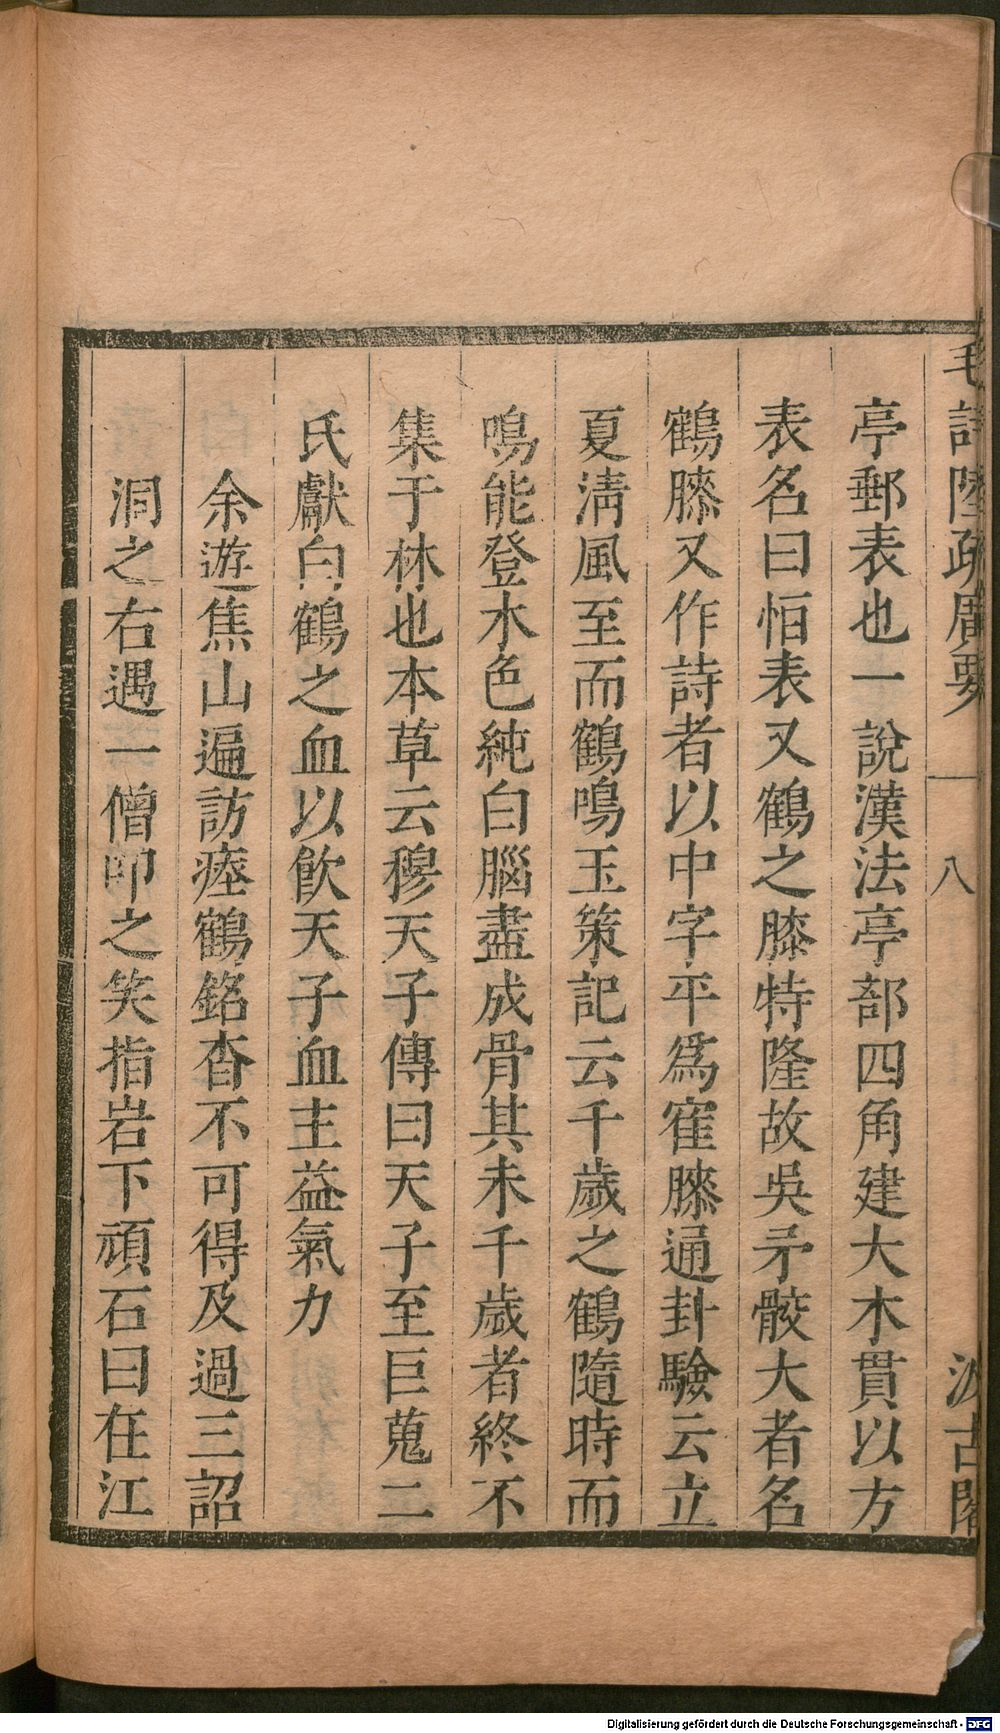 毛詩陸疏廣要 八 汲古閣
亭郵表也一說漢法亭部四角建大木貫以方
表名曰恒表又鶴之膝特隆故吳矛骹大者名
鶴膝又作詩者以中字平爲寉膝通卦驗云立
夏淸風至而鶴鳴玉策記云千歲之鶴隨時而
鳴能登木色純白腦盡成骨其未千歲者終不
集于林也本草云穆天子傳曰天子至巨蒐二
氏獻白鶴之血以飮天子血主益氣力
余遊焦山遍訪瘞鶴銘杳不可得及過三詔
洞之右遇一僧叩之笑指岩下頑石曰在江
Digitalisierung gefördert durch die Deutsche Forschungsgemeinschaft - DFG